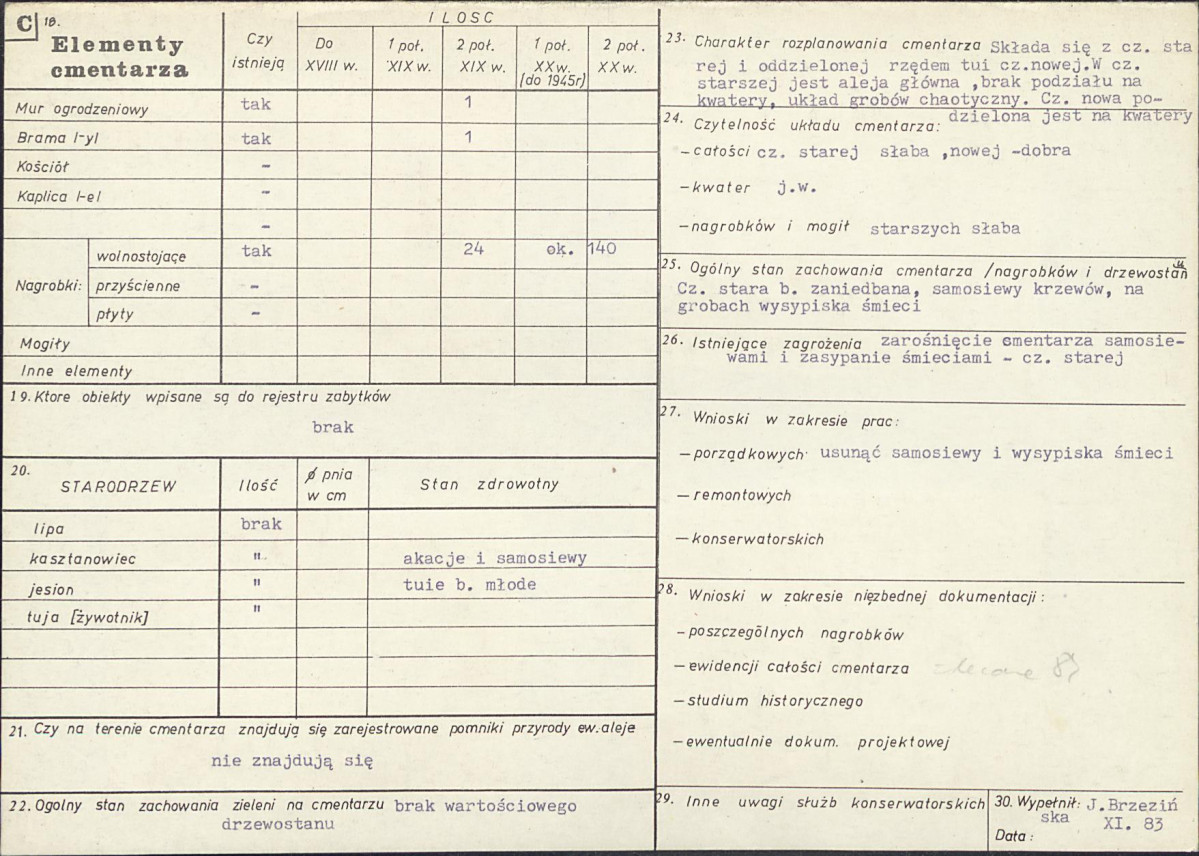 C 18.
Elementy
cmentarza
Czy
istnieją
ILOSC
Do
XVIII w.
1 poł.
XIX w.
2 poł.
XIX w.
1 poł.
XX w.
(do 1945r)
2 poł.
XX w.
Mur ogrodzeniowy tak 1
Brama /-y/ tak 1
Kościół -
Kaplica /-e/ -
-
Nagrobki:
wolnostojące tak 24 ok. 140
przyścienne -
płyty -
Mogiły
Inne elementy
19. Ktore obiekty wpisane są do rejestru zabytków
brak
20.
STARODRZEW Ilość ∅ pnia
w cm
Stan zdrowotny
lipa brak
kasztanowiec " akacje i samosiewy
jesion " tuie b. młode
tuja [żywotnik] "
21. Czy na terenie cmentarza znajdują się zarejestrowane pomniki przyrody ew. aleje
nie znajdują się
22. Ogolny stan zachowania zieleni na cmentarzu brak wartościowego
drzewostanu
23. Charakter rozplanowania cmentarza Składa się z cz. sta
rej i oddzielonej rzędem tui cz.nowej.W cz.
starszej jest aleja główna ,brak podziału na
kwatery, układ grobów chaotyczny. Cz. nowa po-
dzielona jest na kwatery
24. Czytelność układu cmentarza:
-całości cz. starej słaba ,nowej -dobra
-kwater j.w.
-nagrobków i mogił starszych słaba
25. Ogólny stan zachowania cmentarza /nagrobków i drzewostan
Cz. stara b. zaniedbana, samosiewy krzewów, na
grobach wysypiska śmieci
26. Istniejące zagrożenia zarośnięcie cmentarza samosie-
wami i zasypanie śmieciami - cz. starej
27. Wnioski w zakresie prac:
-porządkowych usunąć samosiewy i wysypiska śmieci
-remontowych
-konserwatorskich
28. Wnioski w zakresie niezbednej dokumentacji:
-poszczególnych nagrobków
-ewidencji całości cmentarza
-studium historycznego
-ewentualnie dokum. projektowej
29. Inne uwagi służb konserwatorskich
30. Wypełnił: J.Brzeziń
ska XI. 83
Data: